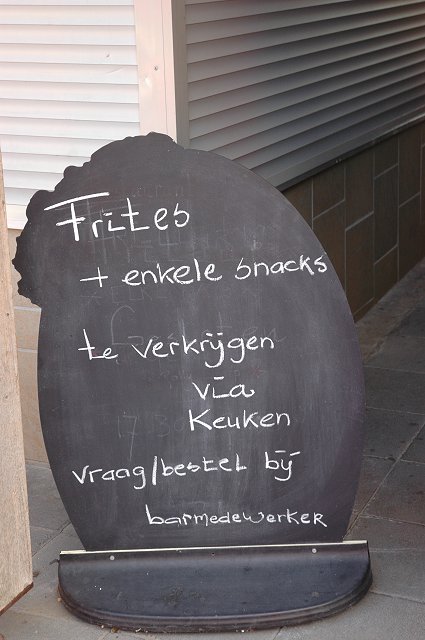 Frites
+ enkele snacks
te verkrijgen
via
Keuken
vraag/bestel bij
barmedewerker